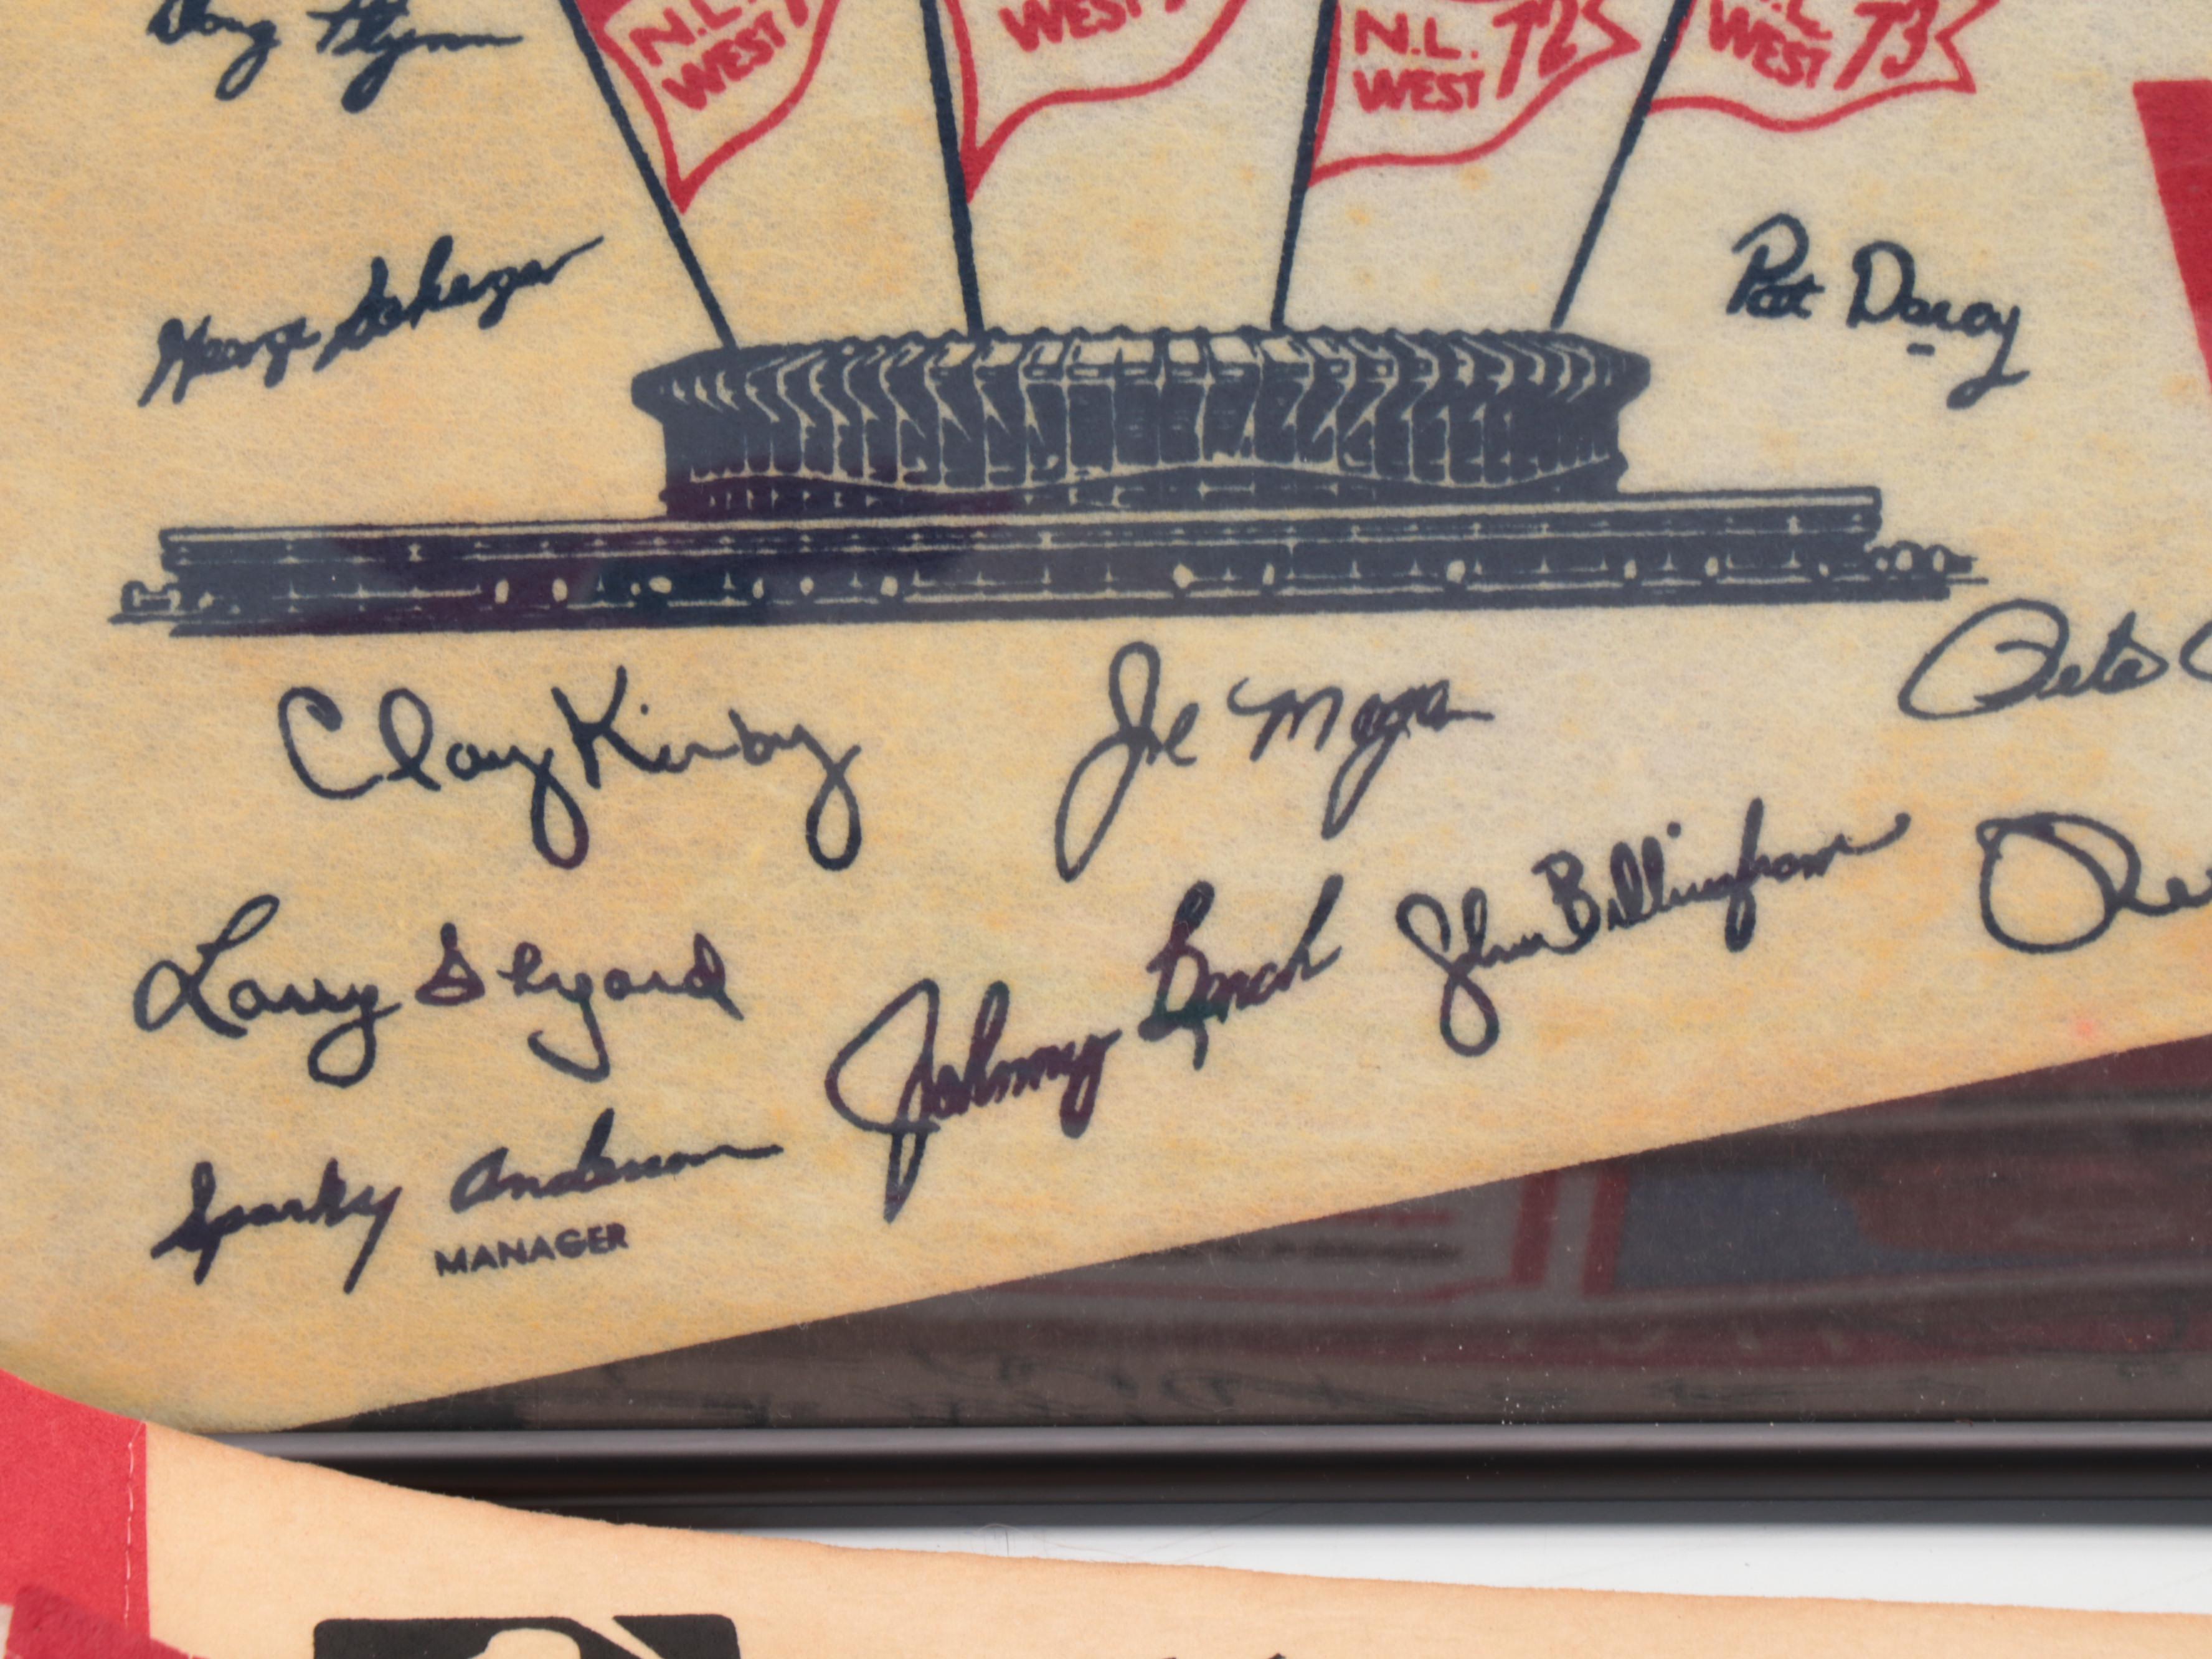 Doug Flynn
N.L.
WEST
WEST
N.L. 72
WEST
N.L. 73
WEST
George Scherger
Pat Darcy
Clay Kirby
Joe Morgan
Pete
Larry Shepard
Johnny Bench
John Billingham
Sparky Anderson
MANAGER